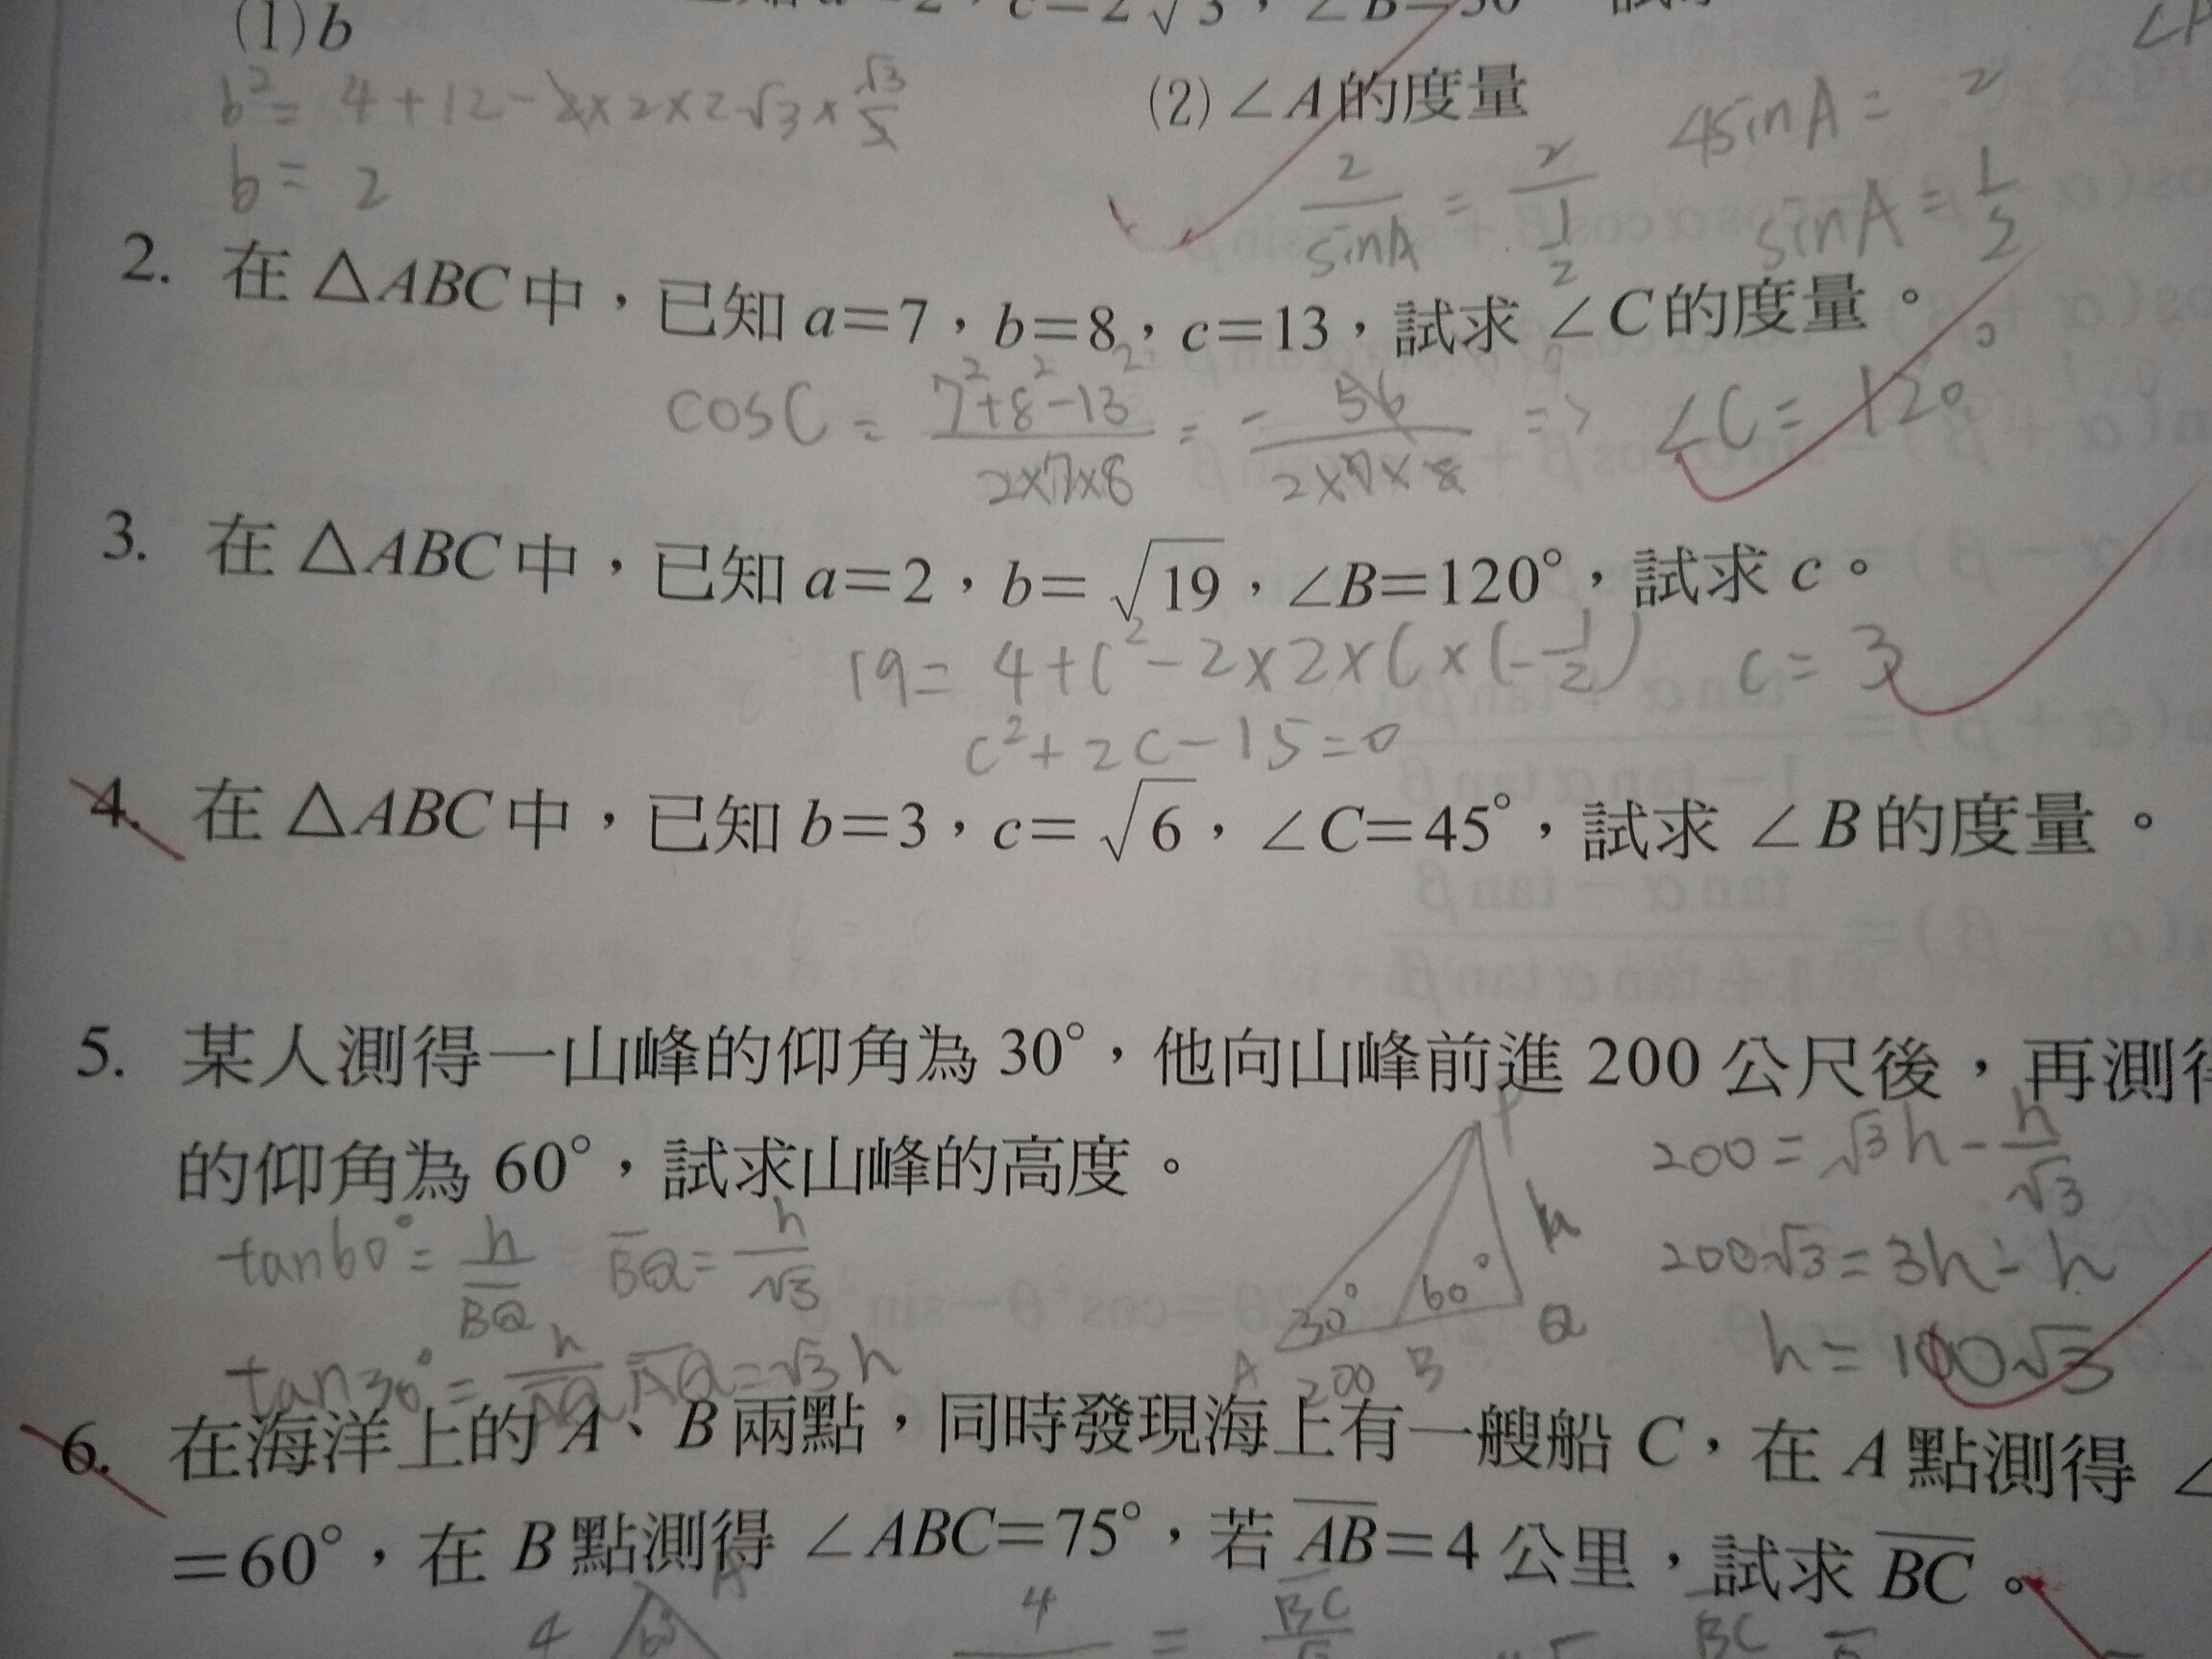 c=2√3, ∠B=30
(1) b
(2) ∠A的度量
b²= 4+12-2×2×2√3×√3/2
b= 2
2/sinA = 2/(1/2)
4sinA= 2
sinA= 1/2
2. 在△ABC中，已知a=7，b=8，c=13，試求∠C的度量。
cosC = (7²+8²-13²)/(2×7×8) = - 56/(2×7×8) => ∠C= 120°
3. 在△ABC中，已知a=2，b=√19，∠B=120°，試求c。
19= 4+c²-2×2×c×(-1/2) c= 3
c²+2c-15=0
4. 在△ABC中，已知b=3，c=√6，∠C=45°，試求∠B的度量。
5. 某人測得一山峰的仰角為30°，他向山峰前進200公尺後，再測得
的仰角為60°，試求山峰的高度。
tan60°= h/BQ BQ= h/√3
tan30°= h/AQ AQ=√3h
P
h
30° 60° Q
A 200 B
200= √3h- h/√3
200√3=3h-h
h= 100√3
6. 在海洋上的A、B兩點，同時發現海上有一艘船C，在A點測得∠
=60°，在B點測得∠ABC=75°，若AB=4公里，試求BC。
A
4 60°
4
=
BC
BC